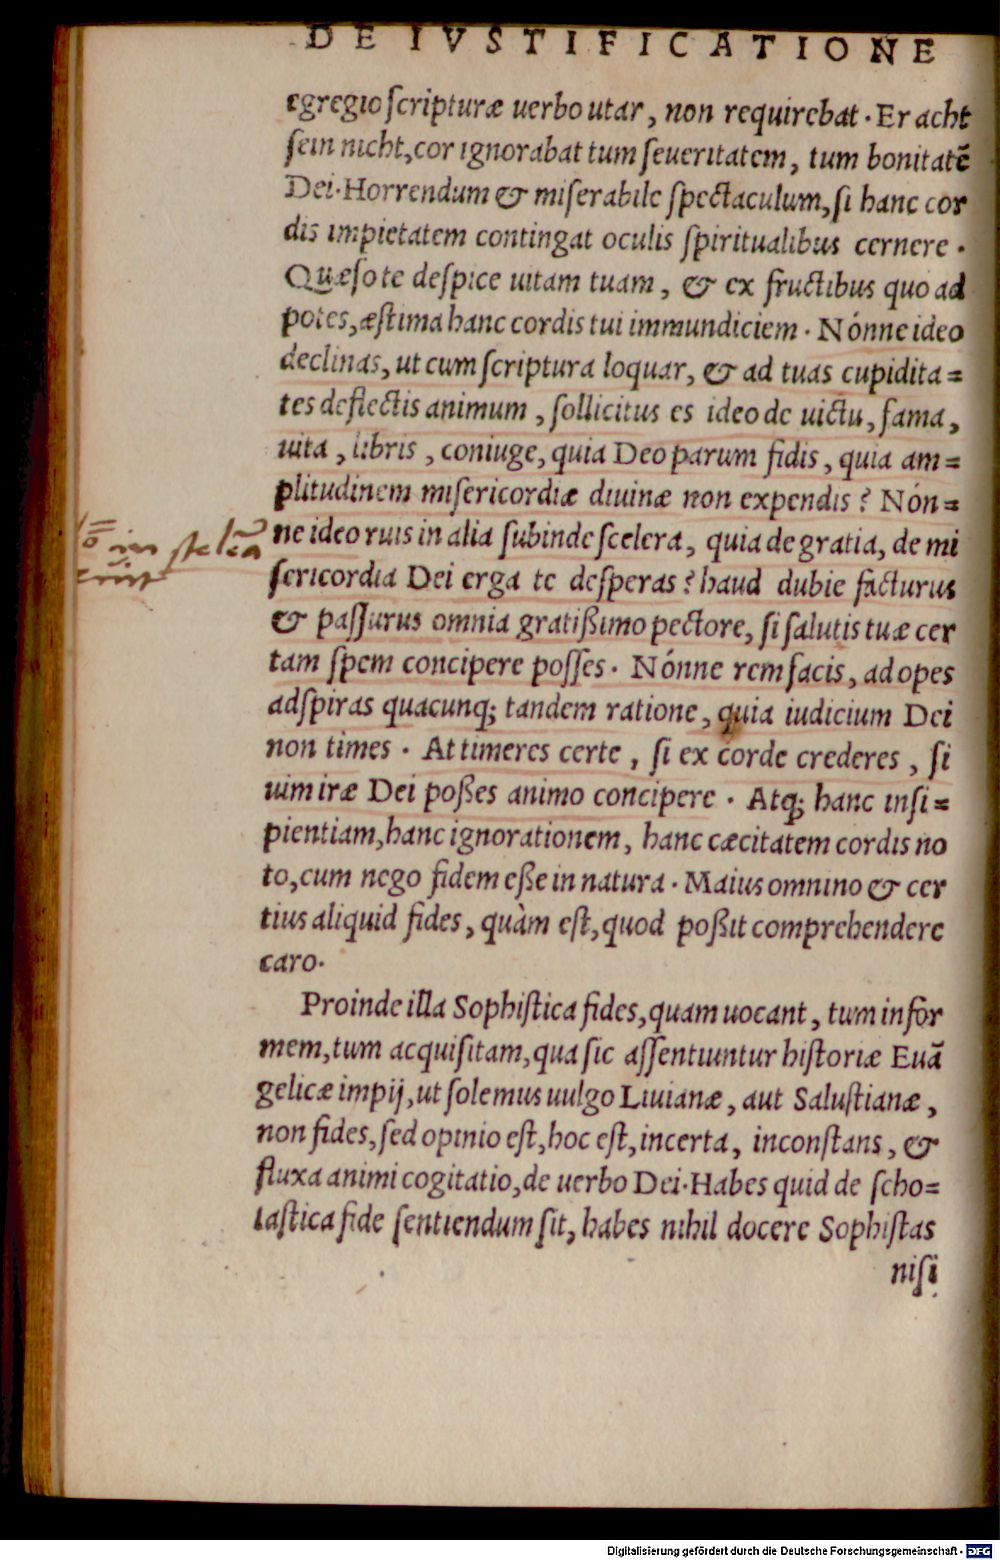 DE IVSTIFICATIONE
egregio ſcripturæ uerbo utar, non requirebat. Er acht
ſein nicht, cor ignorabat tum ſeueritatem, tum bonitatē
Dei. Horrendum & miſerabile ſpectaculum, ſi hanc cor
dis impietatem contingat oculis ſpiritualibus cernere.
Quæſo te deſpice uitam tuam, & ex fructibus quo ad
potes, æſtima hanc cordis tui immundiciem. Nónne ideo
declinas, ut cum ſcriptura loquar, & ad tuas cupidita=
tes deflectis animum, ſollicitus es ideo de uictu, fama,
uita, libris, coniuge, quia Deo parum fidis, quia am=
plitudinem miſericordiæ diuinæ non expendis? Nón=
ne ideo ruis in alia ſubinde ſcelera, quia de gratia, de mi
ſericordia Dei erga te deſperas? haud dubie facturus
& paſſurus omnia gratißimo pectore, ſi ſalutis tuæ cer
tam ſpem concipere poſſes. Nónne rem facis, ad opes
adſpiras quacunq; tandem ratione, quia iudicium Dei
non times. At timeres certe, ſi ex corde crederes, ſi
uim iræ Dei poßes animo concipere. Atq; hanc inſi=
pientiam, hanc ignorationem, hanc cæcitatem cordis no
to, cum nego fidem eße in natura. Maius omnino & cer
tius aliquid fides, quàm eſt, quod poßit comprehendere
caro.
Proinde illa Sophiſtica fides, quam uocant, tum infor
mem, tum acquiſitam, qua ſic aſſentiuntur hiſtoriæ Euā
gelicæ impij, ut ſolemus uulgo Liuianæ, aut Saluſtianæ,
non fides, ſed opinio eſt, hoc eſt, incerta, inconſtans, &
fluxa animi cogitatio, de uerbo Dei. Habes quid de ſcho=
laſtica fide ſentiendum ſit, habes nihil docere Sophiſtas
niſi
Digitalisierung gefördert durch die Deutsche Forschungsgemeinschaft - DFG